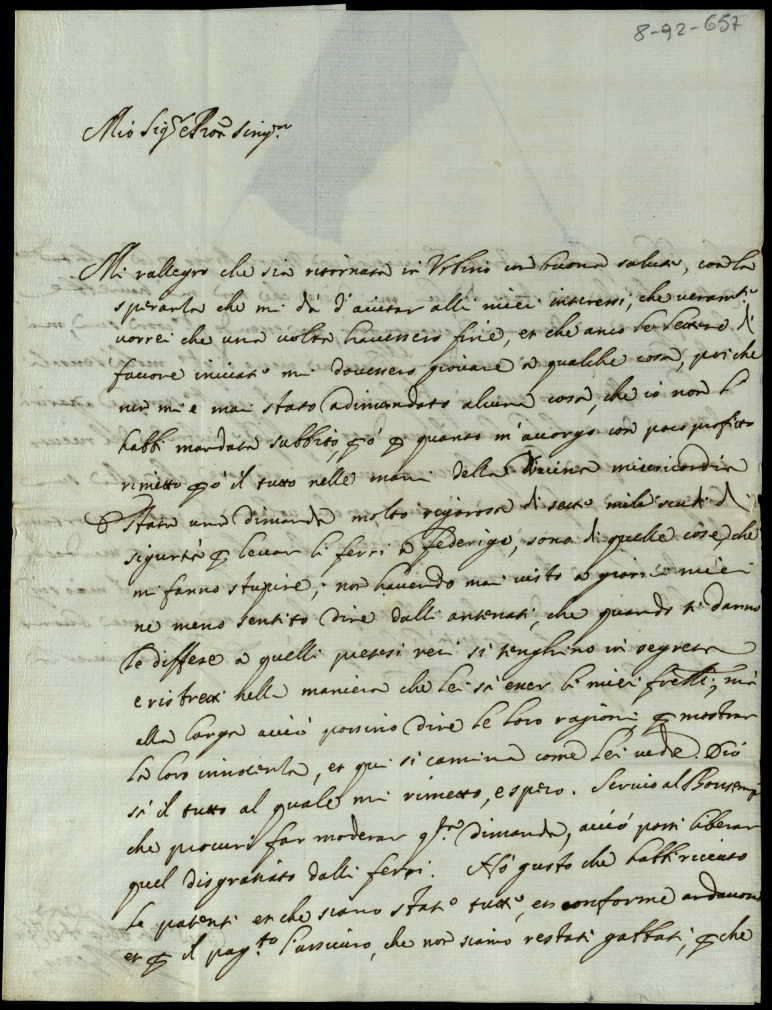 8-92-657
Mio Sig.r e Pron Sing.r
Mi rallegro che sia ritornata in Urbino con buona salute, con la
speranza che mi dà d'aiutar alli miei interessi, che veram.te
vorrei che una volta havessero fine, et che anco le lettere di
favore inviate mi dovessero giovare a qualche cosa, poiche
non mi è mai stato adimandato alcuna cosa, che io non l'
habbi mandata subbito, però per quanto m'accorgo con poco profitto
rimetto però il tutto nelle mani della Divina misericordia
È stata una dimanda molto rigorosa di sette mila scudi di
sigurtà per levar li ferri a Federigo, sono di quelle cose, che
mi fanno stupire; non havendo mai visto a giorni miei
ne meno sentito dire dalli antenati, che quando si danno
le diffese a quelli pretesi rei si tenghino in segreta
e ristretti nella maniera che lei sà esser li miei frelli; mà
alla larga acciò possino dire le loro ragioni per mostrar
la loro innocenza, et qui si camina come lei vede. Dio
sà il tutto al quale mi rimetto, e spero. Scrivo al
che procuri far moderar q.sta dimanda, acciò possi liberar
quel disgratiato dalli ferri. Hò gusto che habbi riceuto
le patenti et che siano state tutte, et conforme andavono
et per il pag.to l'assicuro, che non siamo restati gabbati, per che